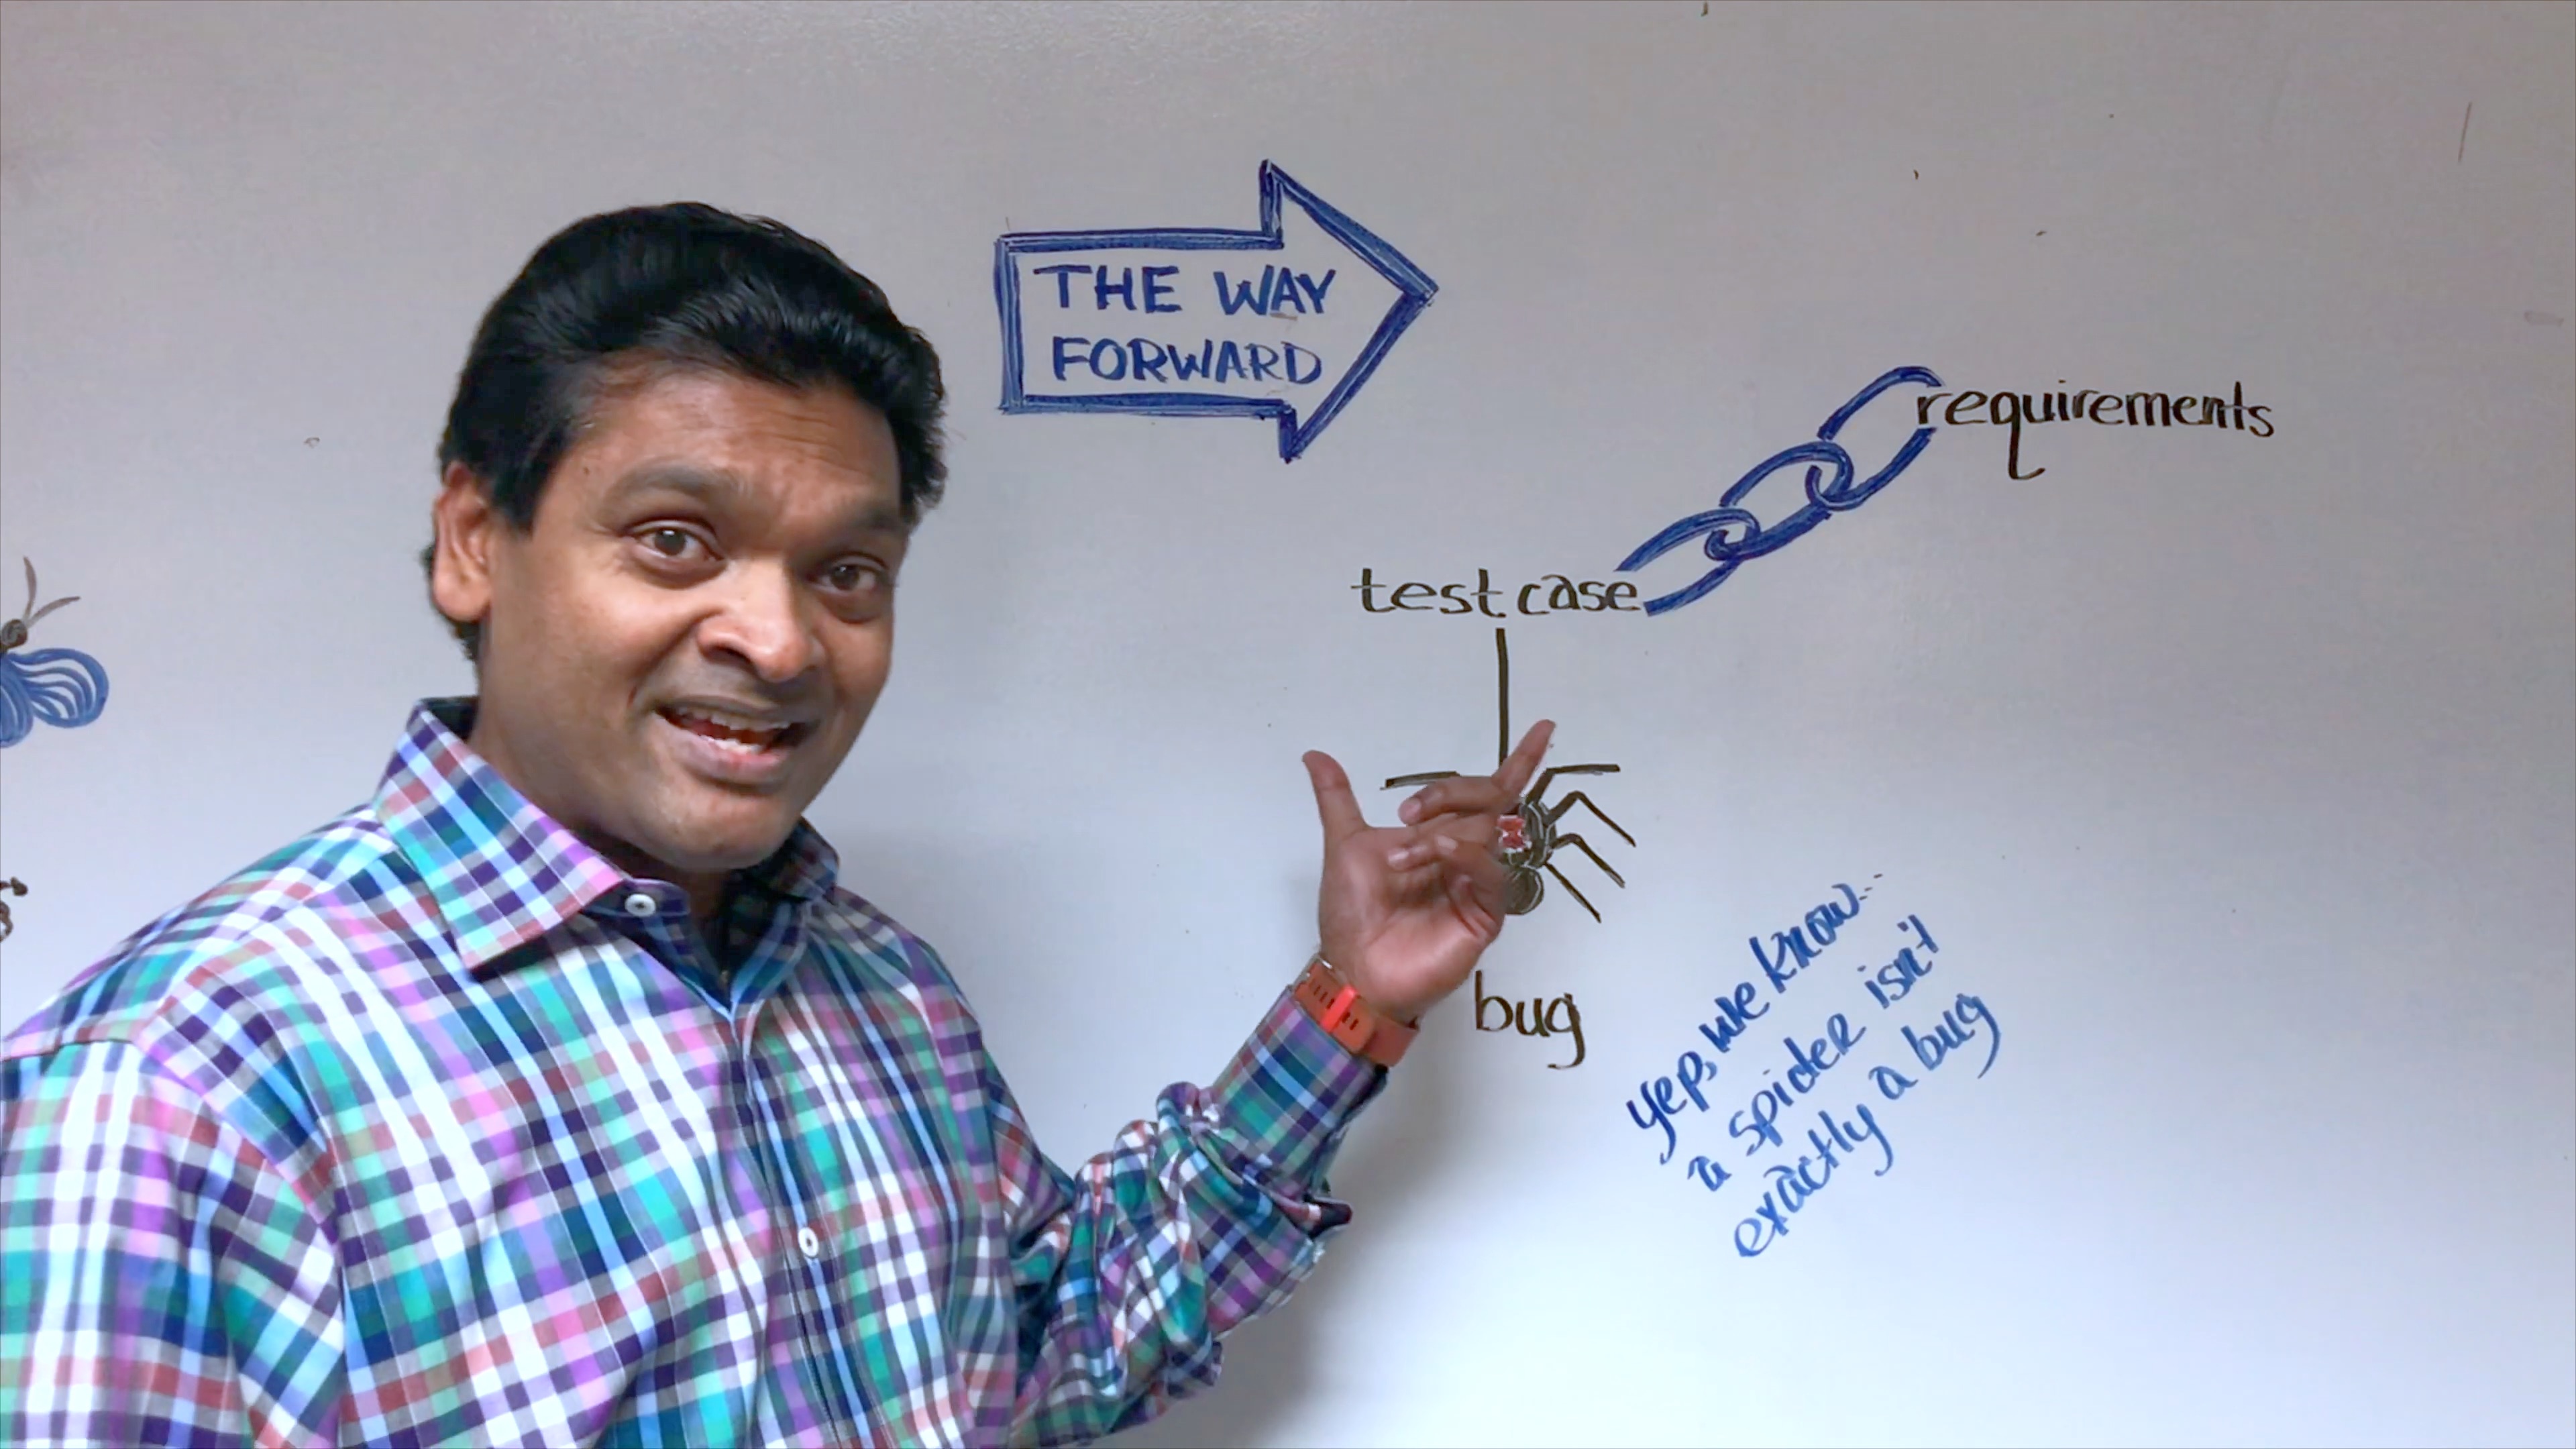 THE WAY
FORWARD
requirements
testcase
bug
yep, we know...
a spider isn't
exactly a bug